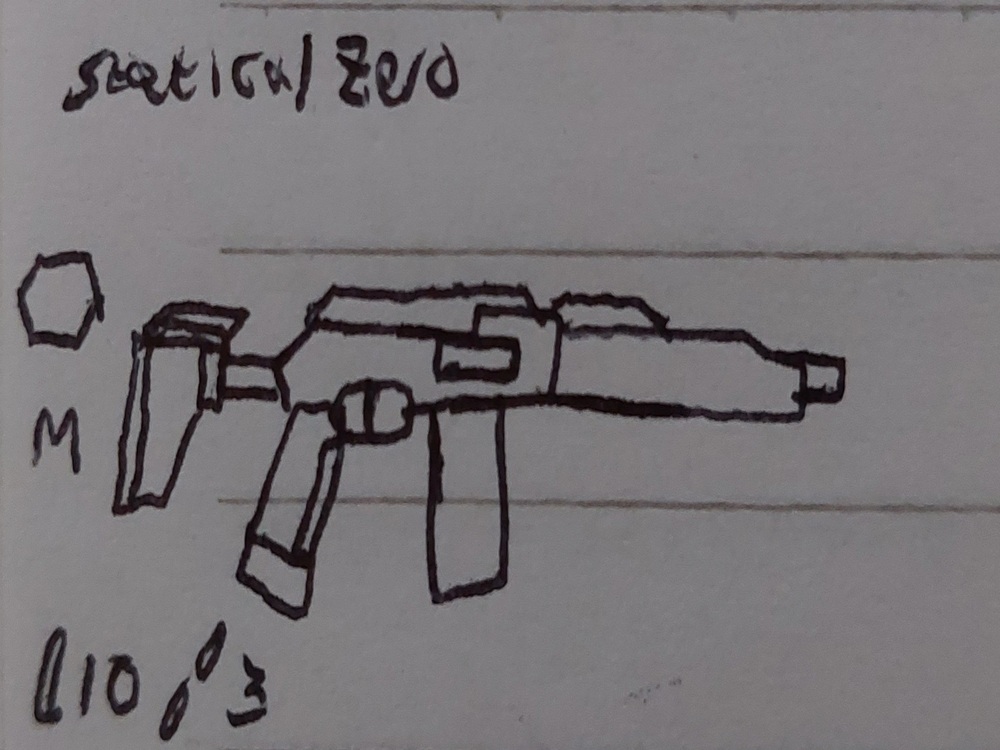 statical Zero
M
10
3